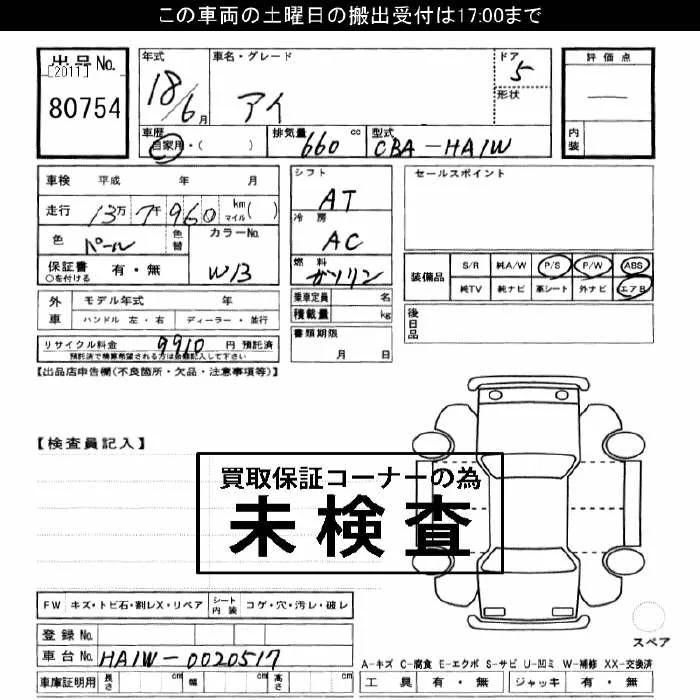 この車両の土曜日の搬出受付は17:00まで
出品No.
[2011]
80754
年式
18/6月
車名・グレード
アイ
ドア
5
形状
評価点
―
内装
車歴
自家用・( )
排気量
660 cc
型式
CBA-HA1W
車検 平成 年 月
走行 13万7千960 km マイル( )
色 パール
色替
カラーNo.
W13
保証書 有・無
○を付ける
シフト
AT
冷房
AC
燃料
ガソリン
セールスポイント
装備品
S/R 純A/W P/S P/W ABS
純TV 純ナビ 革シート 外ナビ エアB
外車
モデル年式 年
ハンドル 左・右 ディーラー・並行
乗車定員 名
積載量 kg
後日品
リサイクル料金 9910 円 預託済
預託済で精算希望される方は金額記入して下さい
書類期限
月 日
【出品店申告欄(不良箇所・欠品・注意事項等)】
【検査員記入】
買取保証コーナーの為
未検査
FW キズ・トビ石・割レX・リペア
シート内装 コゲ・穴・汚レ・破レ
登録No.
車台No. HA1W-0020517
車庫証明用 長さ cm 幅 cm 高さ cm
スペア
A-キズ C-腐食 E-エクボ S-サビ U-凹ミ W-補修 XX-交換済
工具 有・無 ジャッキ 有・無